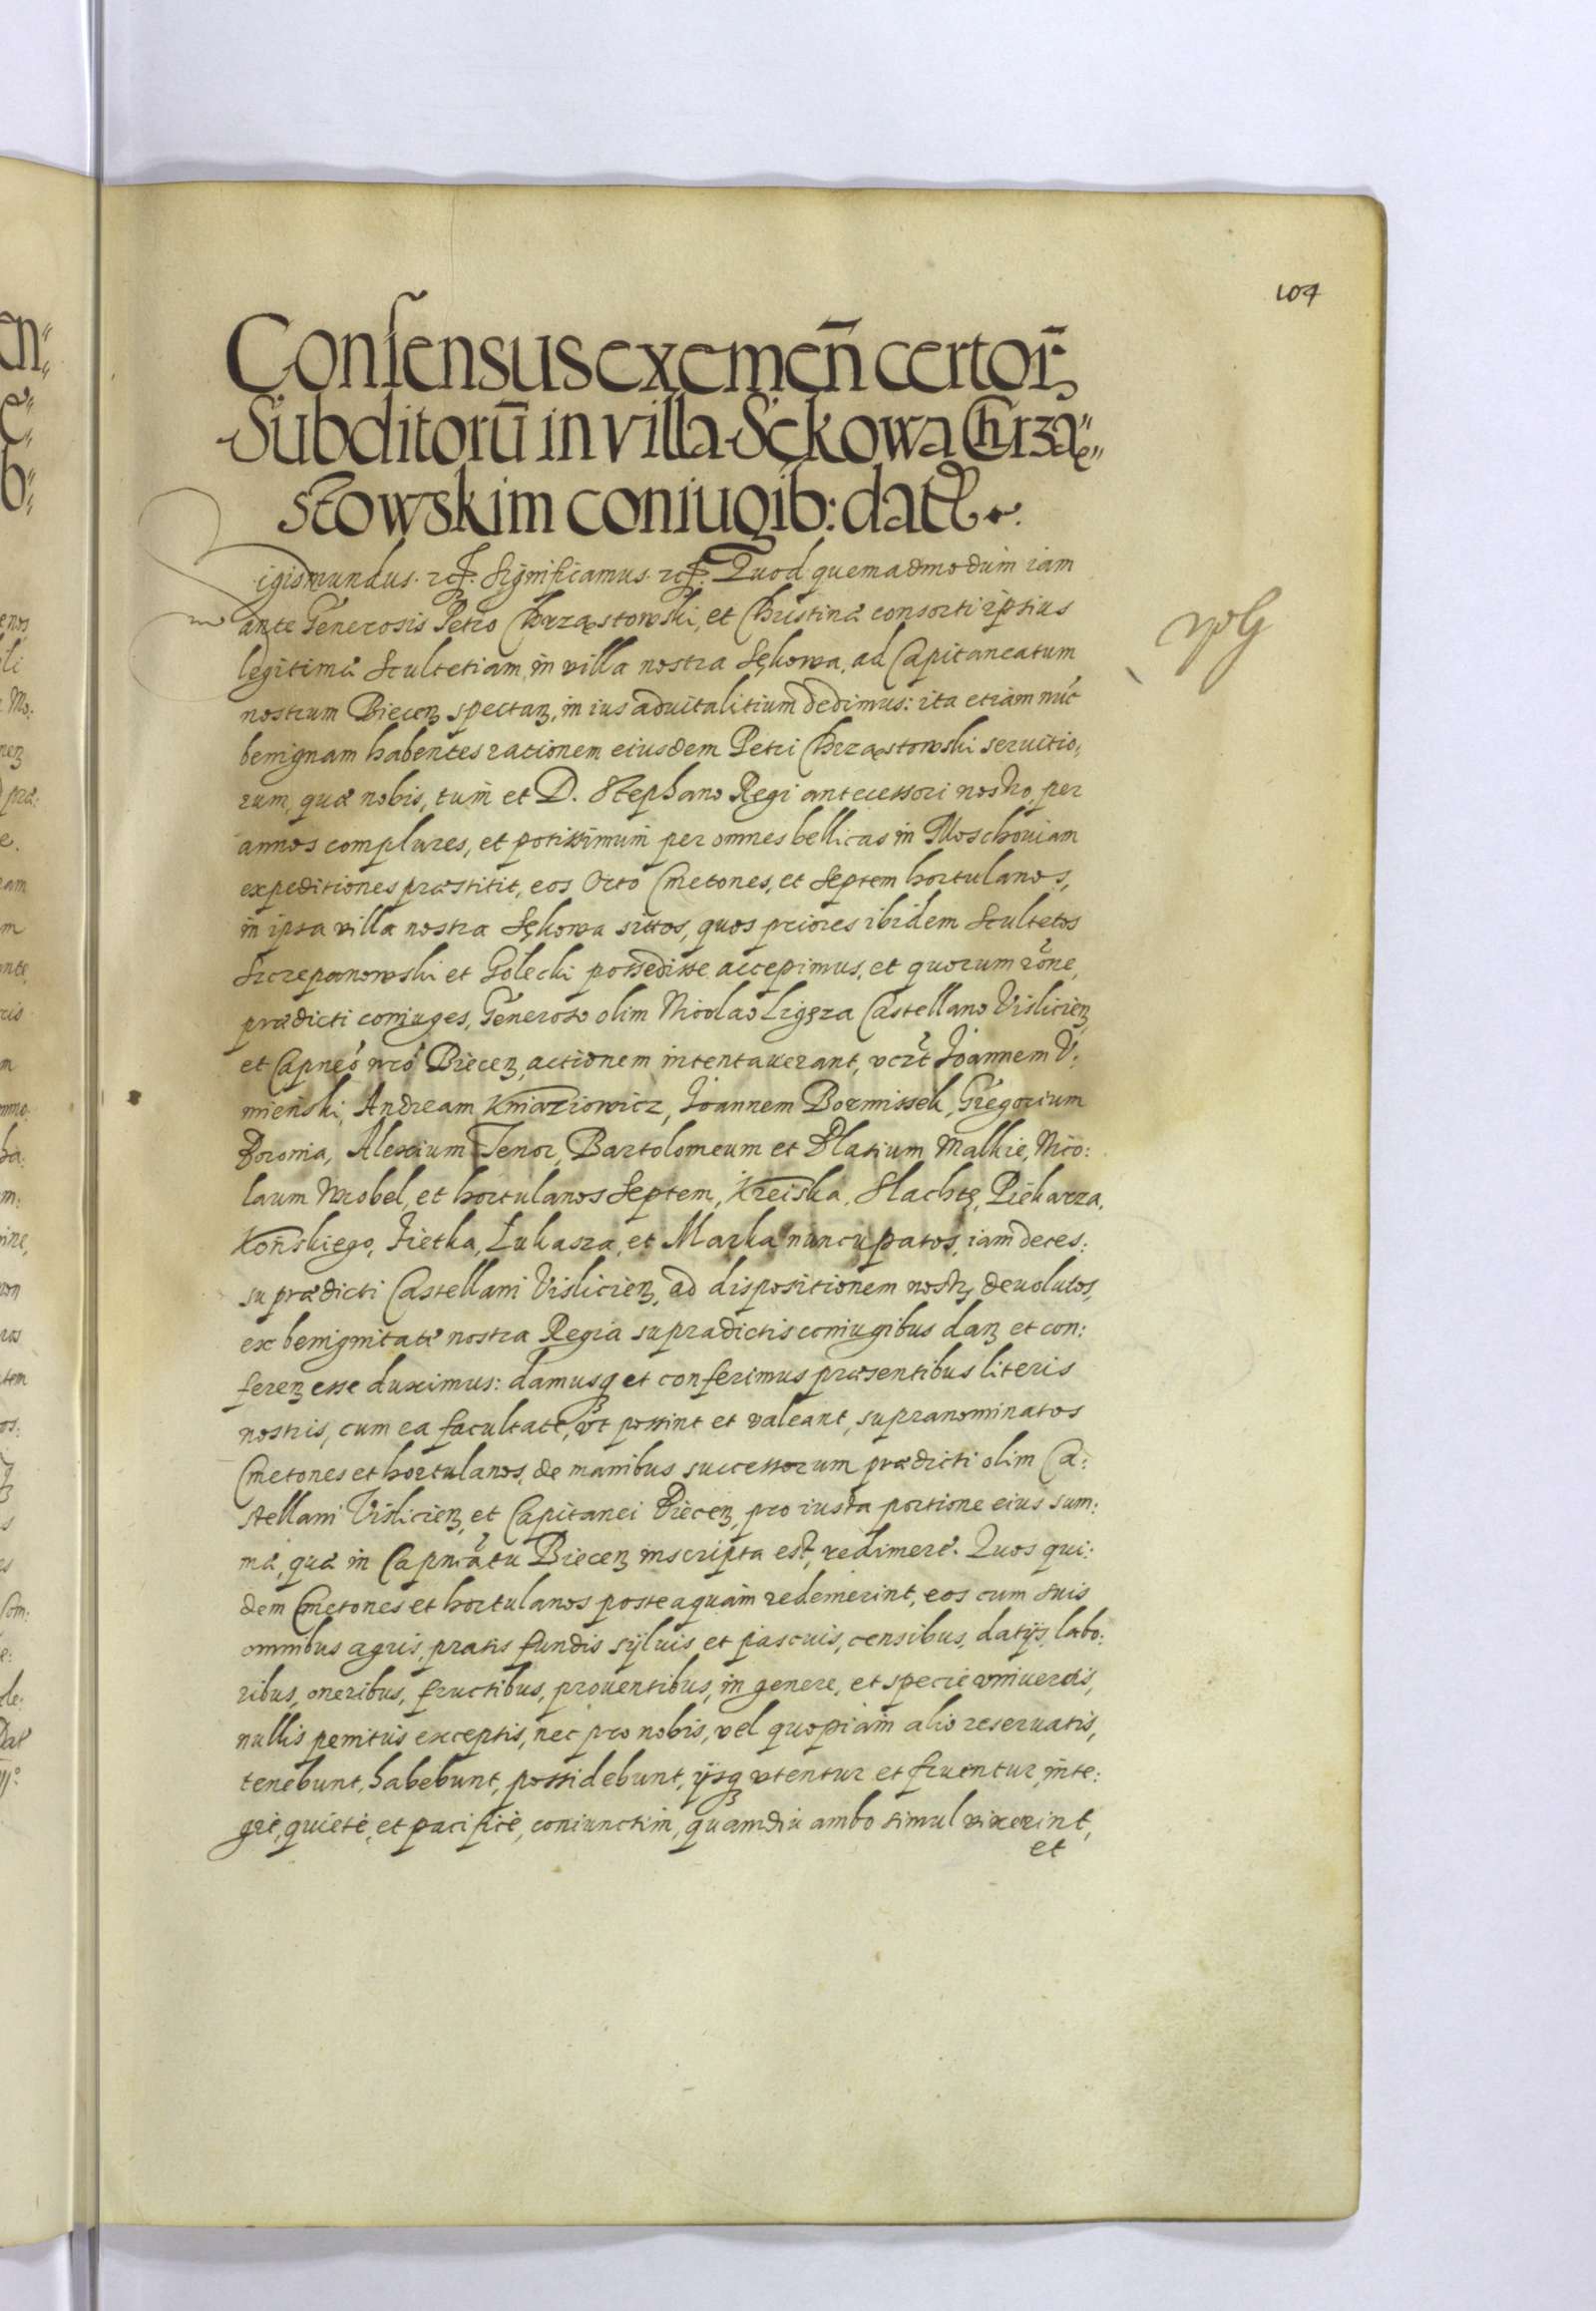 104
Consensus exemeñ certoȓ
Subditorū in villa Sękowa Chrzą„
stowskim coniugib: dat⁊
Sigismundus. rc̃. Significamus. rc̃. Quod quemadmodum iam
ante Generosis Petro Chrząstowski, et Christinæ consorti ipsius
legitimæ Scultetiam in villa nostra Sękowa, ad Capitaneatum
nostrum Biecen̄ spectan̄, in ius aduitalitium dedimus: ita etiam nūc
benignam habentes rationem eiusdem Petri Chrząstowski seruitio:
rum, quæ nobis, tum et D. Stephano Regi antecessori nostro, per
annos complures, et potissimum per omnes bellicas in Moschouiam
expeditiones præstitit, eos Octo Cmetones, et Septem hortulanos,
in ipsa villa nostra Sękowa sitos, quos priores ibidem Scultetos
Szczepanowski et Golecki possedisse accepimus, et quorum rōne,
prædicti coniuges, Generoso olim Nicolao Ligęza Castellano Vislicien̄
et Capneō nrō Biecen̄, actionem intentauerant, vczt Joannem V:
mienski, Andream Kniaziowicz, Joannem Bormissek, Gregorium
Doronia, Alexium Tenor, Bartolomeum et Blasium Malkie, Nico:
laum Wrobel, et hortulanos Septem, Kreiska, Slachtę, Piekarza,
Końskiego, Zietka, Lukasza, et Marka nuncupatos, iam deces:
su prædicti Castellani Vislicien̄, ad dispositionem nostrę deuolutos,
ex benignitate nostra Regia supradictis coniugibus dan̄ et con:
feren̄ esse duximus: damusq̨ et conferimus præsentibus literis
nostris, cum ea facultate, vt possint et valeant, supranominatos
Cmetones et hortulanos, de manibus successorum prædicti olim Ca:
stellani Vislicien̄, et Capitanei Biecen̄, pro iusta portione eius sum:
mæ, quæ in Capn̄eatu Biecen̄ inscripta est, redimere. Quos qui:
dem Cmetones et hortulanos posteaquam redemerint, eos cum suis
omnibus agris, pratis fundis syluis et pascuis, censibus, datijs, labo:
ribus, oneribus, fructibus, prouentibus, in genere, et specie vniuersis,
nullis penitus exceptis, nec pro nobis, vel quopiam alio reseruatis,
tenebunt, habebunt, possidebunt, ijsq̨ vtentur et fruentur, inte:
grè, quietè, et pacificè, coniunctim, quamdiu ambo simul vixerint,
et